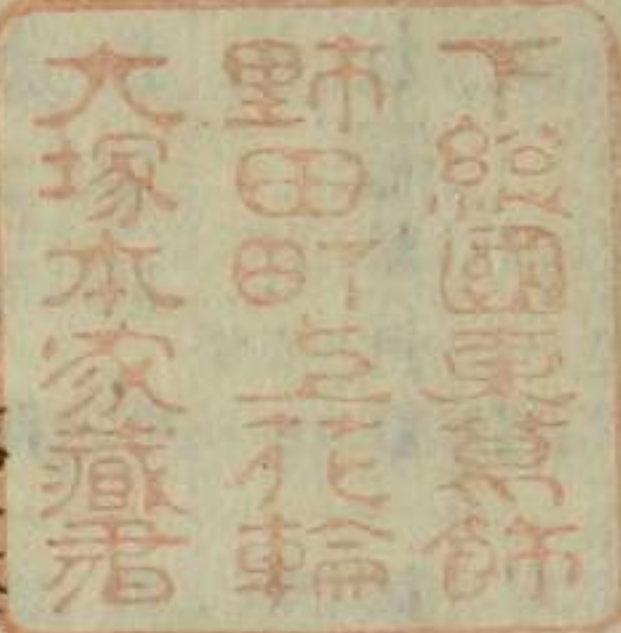 下總國東葛飾
野田町上花輪
大塚本家藏書